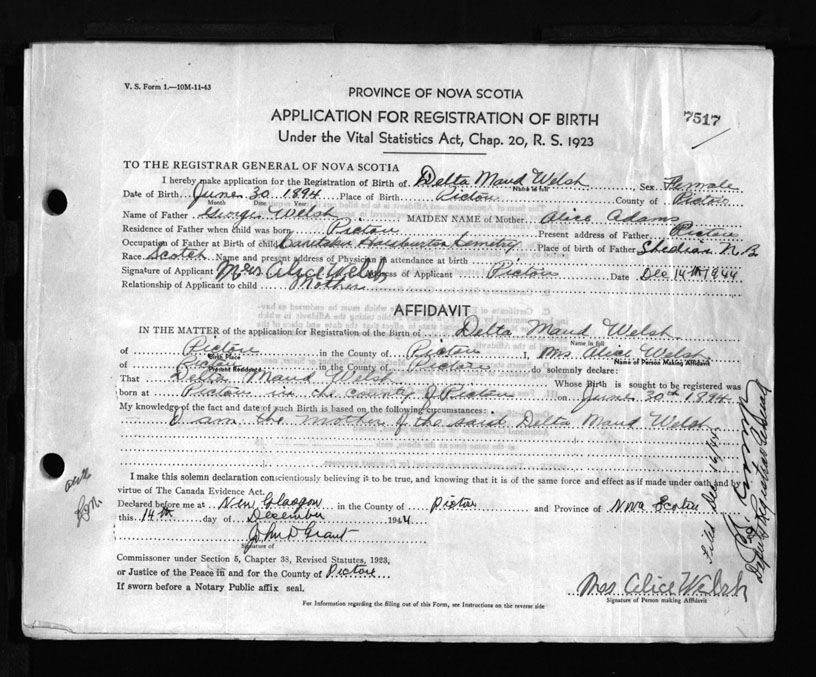 V. S. Form 1.—10M-11-43
PROVINCE OF NOVA SCOTIA
APPLICATION FOR REGISTRATION OF BIRTH
7517
Under the Vital Statistics Act, Chap. 20, R. S. 1923
TO THE REGISTRAR GENERAL OF NOVA SCOTIA
I hereby make application for the Registration of Birth of Delta Maud Welsh, Sex Female
Name in full
Date of Birth June 30 1894 Place of Birth Pictou County of Pictou
Month Date Year
Name of Father George Welsh MAIDEN NAME of Mother Alice Adams
Residence of Father when child was born Pictou Present address of Father Pictou
Occupation of Father at Birth of child Caretaker Cemetry Place of birth of Father Shediac N B
Race Scotch Name and present address of Physician in attendance at birth
Signature of Applicant Mrs Alice Welsh Address of Applicant Pictou Date Dec 14th 1944
Relationship of Applicant to child Mother
AFFIDAVIT
IN THE MATTER of the application for Registration of the Birth of Delta Maud Welsh
Name in full
of Pictou in the County of Pictou I, Mrs. Alice Welsh
Birth Place Name of Person Making Affidavit
of Pictou in the County of Pictou do solemnly declare:
Present Residence
That Delta Maud Welsh Whose Birth is sought to be registered was
born at Pictou in the County of Pictou on June 30th 1894
My knowledge of the fact and date of such Birth is based on the following circumstances:
I am the mother of the said Delta Maud Welsh
I make this solemn declaration conscientiously believing it to be true, and knowing that it is of the same force and effect as if made under oath and by
virtue of The Canada Evidence Act.
Declared before me at New Glasgow in the County of Pictou and Province of Nova Scotia
this 14th day of December 1944
John D Grant
Signature of
Commissioner under Section 5, Chapter 38, Revised Statutes, 1923,
or Justice of the Peace in and for the County of Pictou
If sworn before a Notary Public affix seal.
Mrs Alice Welsh
Signature of Person making Affidavit
For Information regarding the filling out of this Form, see Instructions on the reverse side
Filed Dec 16/44
Deputy Registrar General